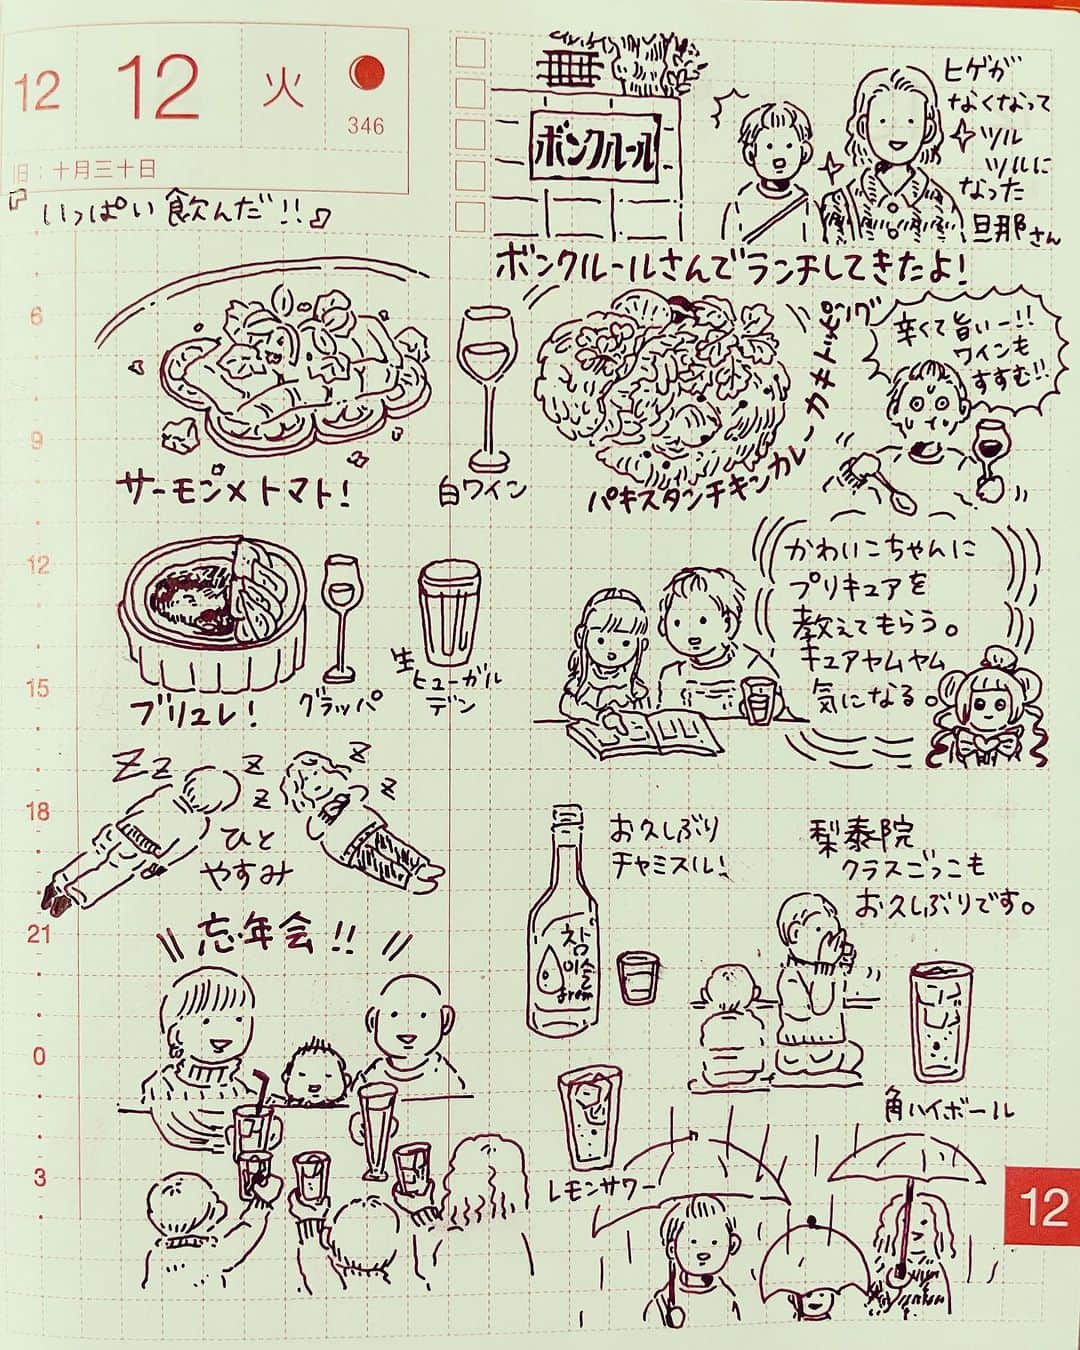 12
12
火
346
旧：十月三十日
いっぱい飲んだ!!
ボンクルール
ヒゲが
なくなって
ツル
ツルに
なった
旦那さん
ボンクルールさんでランチしてきたよ!
6
9
12
15
18
21
0
3
サーモン×トマト!
白ワイン
パキスタンチキンカレーカキトッピング
辛くて旨いー!!
ワインも
すすむ!!
ブリュレ!
グラッパ
生
ヒューガル
デン
かわいこちゃんに
プリキュアを
教えてもらう。
キュアヤムヤム
気になる。
Zz
z
z
z
z
ひと
やすみ
忘年会!!
お久しぶり
チャミスル!
참
이슬
fresh
梨泰院
クラスごっこも
お久しぶりです。
角ハイボール
レモンサワー
12